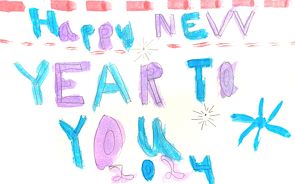 Happy NEW
YEAR TO
YOU
2024